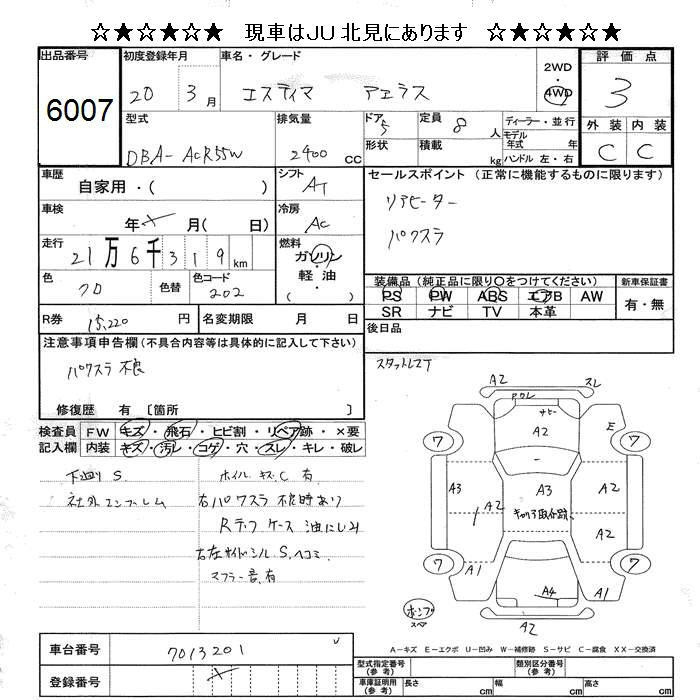 ☆★☆★☆ 現車はJU北見にあります ☆★☆★☆
出品番号 初度登録年月 車名・グレード 評価点
6007 20 3月 エスティマ アエラス 2WD・4WD 3
型式 排気量 ドア 定員 ディーラー・並行 外装 内装
DBA-ACR55W 2400 CC 5 8人 モデル年式 年 C C
形状 積載 kg ハンドル 左・右
車歴 自家用・( ) シフト AT セールスポイント (正常に機能するものに限ります)
車検 年 月( 日) 冷房 AC リアヒーター
パワスラ
走行 21万6千319km 燃料 ガソリン・軽・油・( )
色 クロ 色替 色コード 202
装備品 (純正品に限り○をつけてください) 新車保証書
PS PW ABS エアB AW 有・無
SR ナビ TV 本革
R券 15,220円 名変期限 月 日 後日品
注意事項申告欄 (不具合内容等は具体的に記入して下さい)
パワスラ不良
スタットレスT
修復歴 有 〔箇所 〕
検査員記入欄 FW キズ・飛石・ヒビ割・リペア跡・×要
内装 キズ・汚レ・コゲ・穴・スレ・キレ・破レ
下廻りS. ホイルキズC有
社外エンブレム 右パワスラ不良時あり
Rデフケース油にじみ
右左サイドシルS.ヘコミ
マフラー音有
A2 スレ
サビー
A2 E
7 7
A3 A3 A2
キャリア取付跡
A2
7 7
A1 A4 A1
A2
スペア
A-キズ E-エクボ U-凹み W-補修跡 S-サビ C-腐食 XX-交換済
車台番号 7013201
登録番号
型式指定番号(参考) 類別区分番号(参考)
車庫証明用(参考) 長さ cm 幅 cm 高さ cm